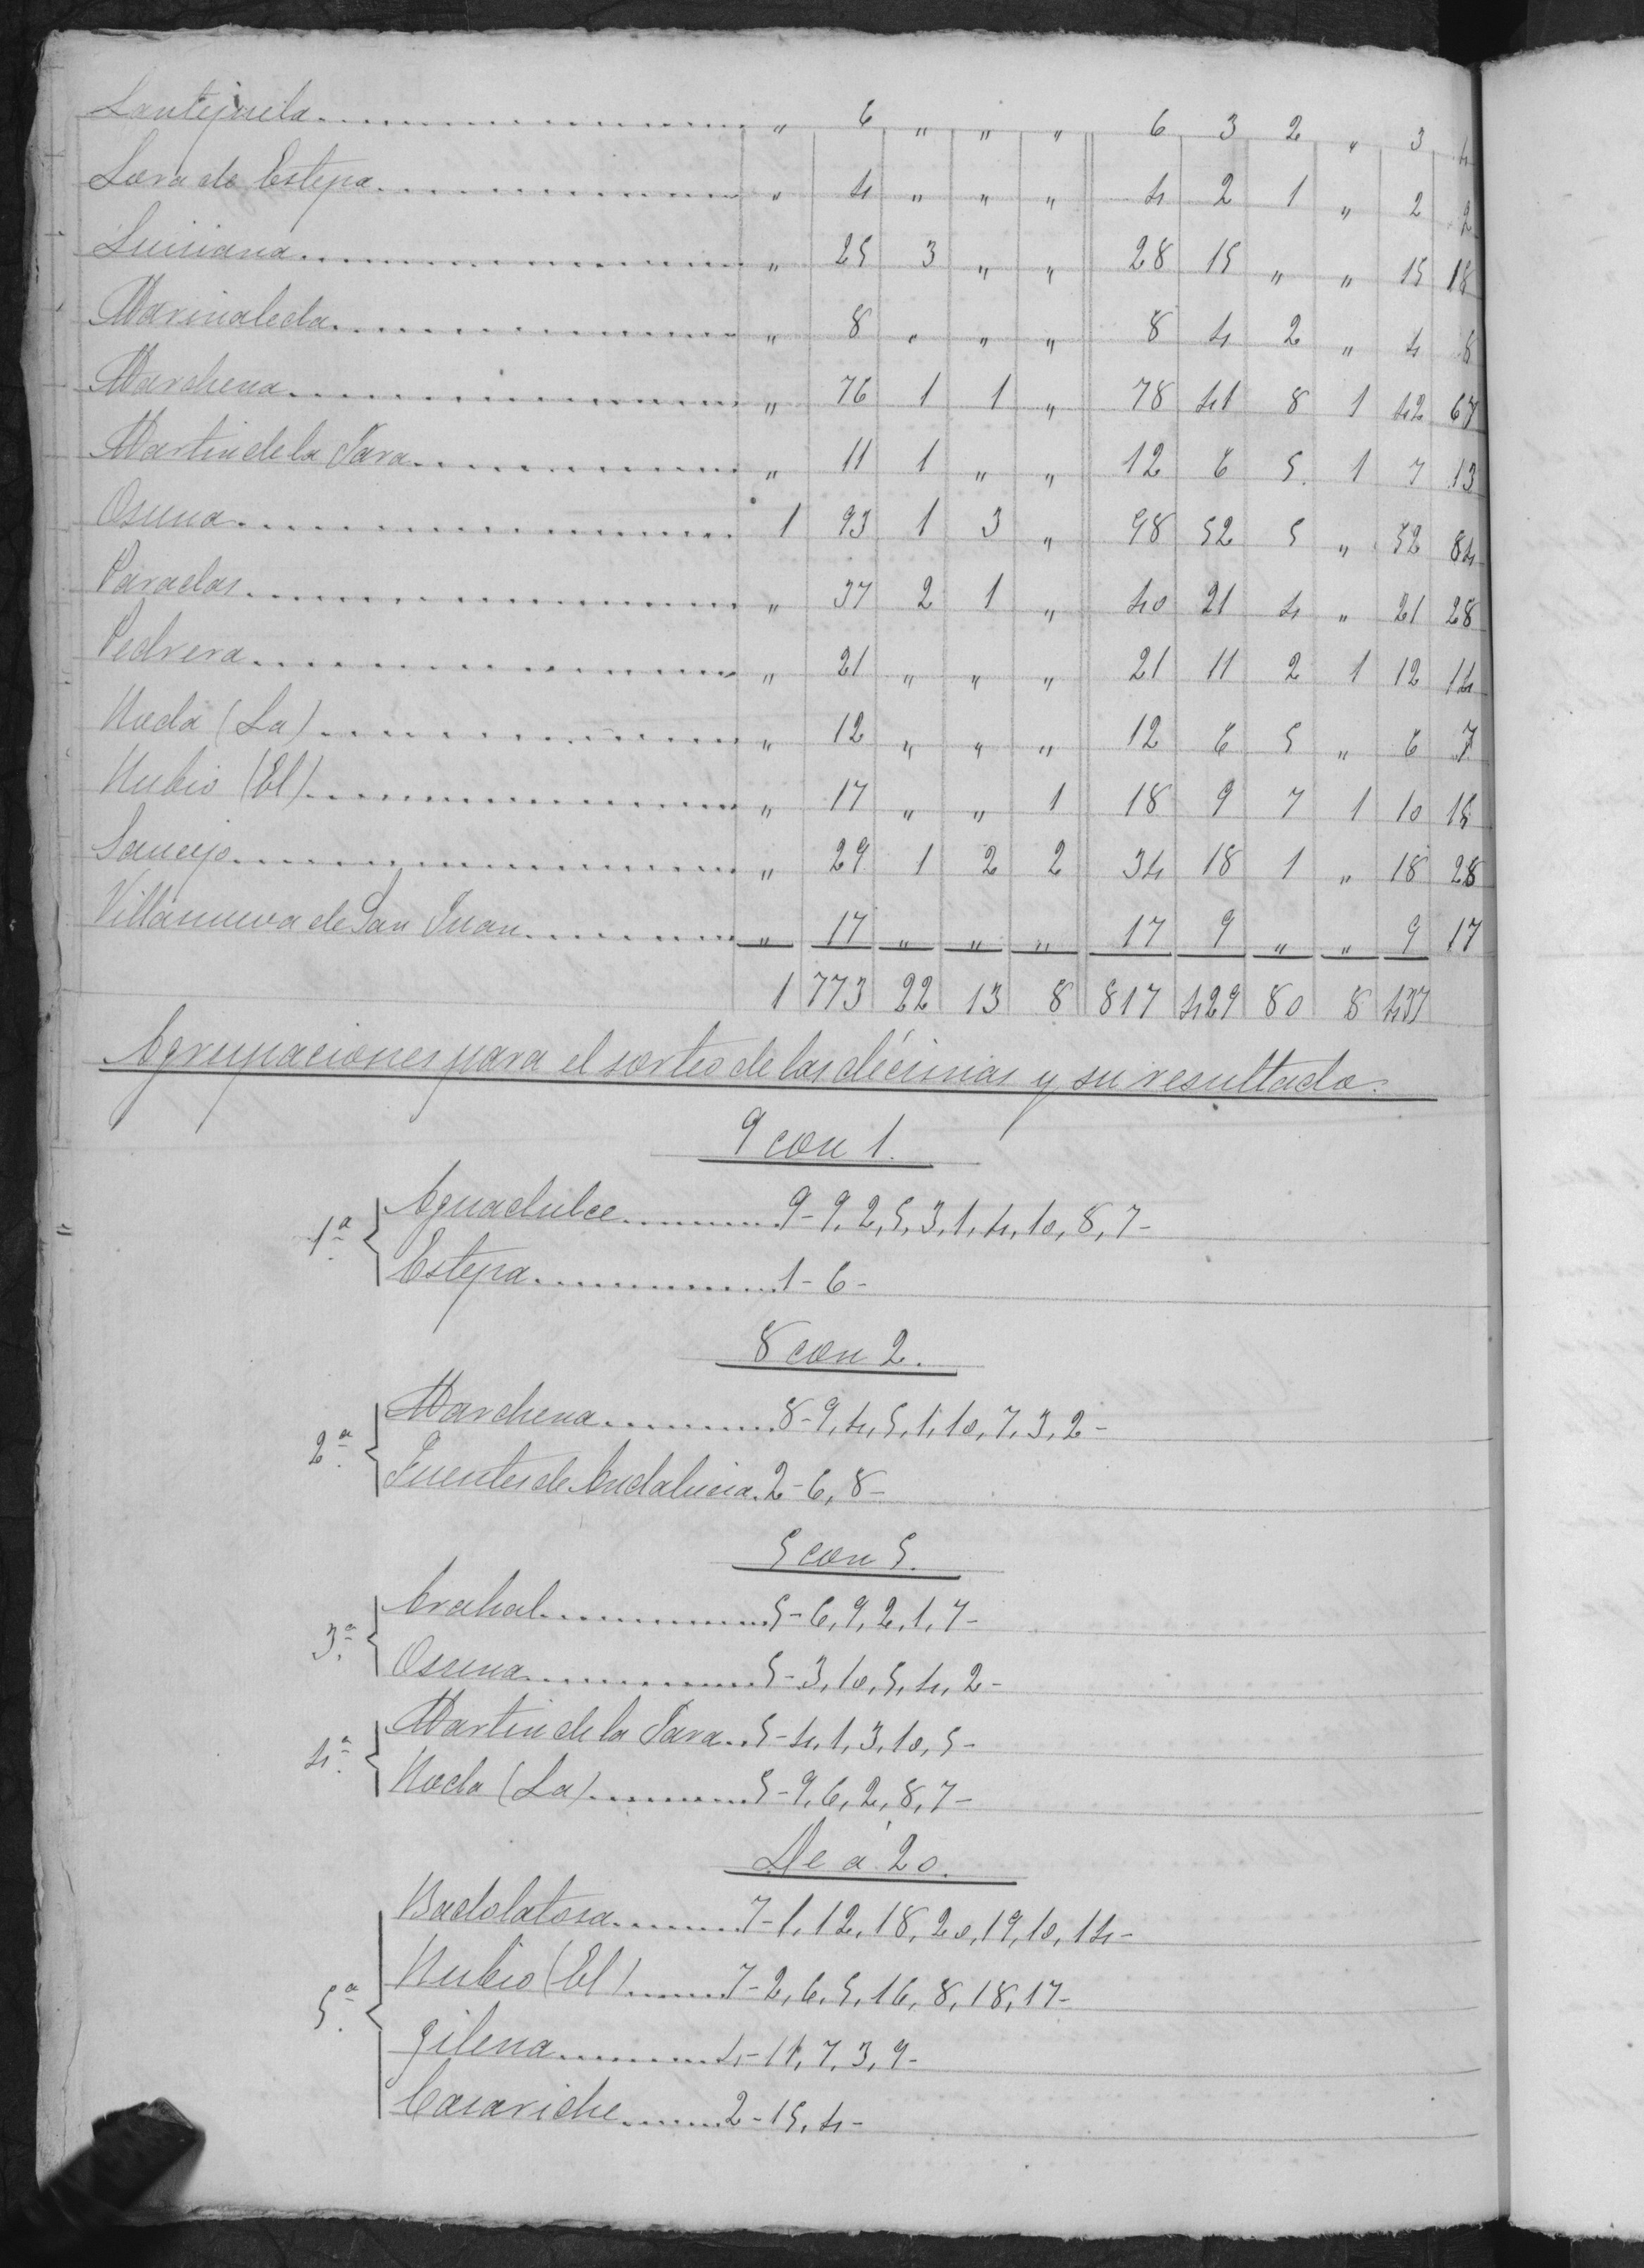 Lantejuela " 6 " " " 6 3 2 " 3 4
Lora de Estepa " 4 " " " 4 2 1 " 2 2
Luisiana " 25 3 " " 28 15 " " 15 18
Marinaleda " 8 " " " 8 4 2 " 4 8
Marchena " 76 1 1 " 78 41 8 1 42 67
Martin de la Jara " 11 1 " " 12 6 5 1 7 13
Osuna 1 93 1 3 " 98 52 5 " 52 84
Paradas " 37 2 1 " 40 21 4 " 21 28
Pedrera " 21 " " " 21 11 2 1 12 14
Roda (La) " 12 " " " 12 6 5 " 6 7
Rubio (El) " 17 " " 1 18 9 7 1 10 18
Saucejo " 29 1 2 2 34 18 1 " 18 28
Villanueva de San Juan " 17 " " " 17 9 " " 9 17
1 773 22 13 8 817 429 80 8 437
Agrupaciones para el sorteo de las décimas y su resultado.
9 con 1.
1ª Aguadulce 9-9,2,5,3,1,4,10,8,7-
Estepa 1-6-
8 con 2.
2ª Marchena 8-9,4,5,1,10,7,3,2-
Fuentes de Andalucia 2-6,8-
5 con 5.
3ª Arahal 5-6,9,2,1,7-
Osuna 5-3,10,5,4,2-
4ª Martin de la Jara 5-4,1,3,10,5-
Roda (La) 5-9,6,2,8,7-
De á 20.
Badolatosa 7-1,12,18,20,19,10,14-
5ª Rubio (El) 7-2,6,5,16,8,18,17-
Gilena 4-11,7,3,9-
Casariche 2-15,4-